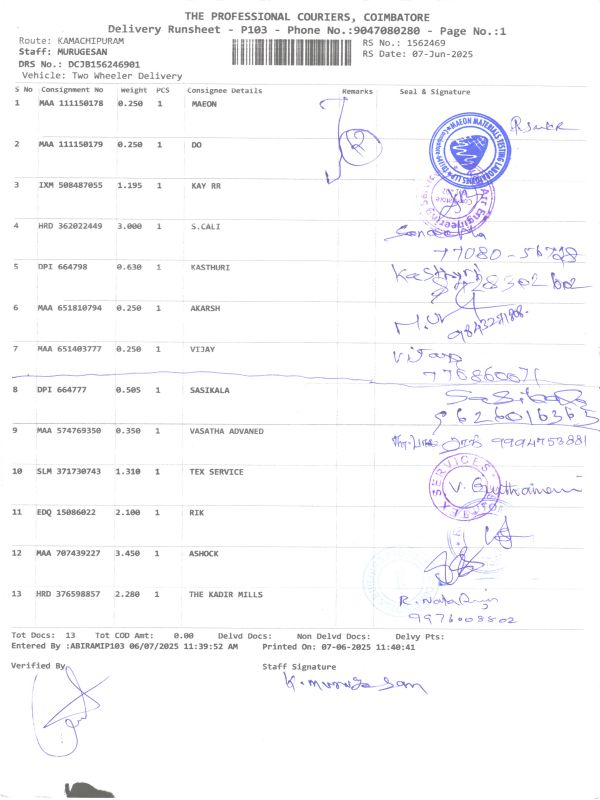 THE PROFESSIONAL COURIERS, COIMBATORE
Delivery Runsheet - P103 - Phone No.:9047080280 - Page No.:1
Route: KAMACHIPURAM
RS No.: 1562469
Staff: MURUGESAN
RS Date: 07-Jun-2025
DRS No.: DCJB156246901
Vehicle: Two Wheeler Delivery
S No Consignment No Weight PCS Consignee Details Remarks Seal & Signature
1 MAA 111150178 0.250 1 MAEON
2 MAA 111150179 0.250 1 DO
3 IXM 508487055 1.195 1 KAY RR
4 HRD 362022449 3.000 1 S.CALI
77080-56728
5 DPI 664798 0.630 1 KASTHURI
6 MAA 651810794 0.250 1 AKARSH
7 MAA 651403777 0.250 1 VIJAY
8 DPI 664777 0.505 1 SASIKALA
9626016365
9 MAA 574769350 0.350 1 VASATHA ADVANED 9994753881
10 SLM 371730743 1.310 1 TEX SERVICE
11 EDQ 15086022 2.100 1 RIK
12 MAA 707439227 3.450 1 ASHOCK
13 HRD 376598857 2.280 1 THE KADIR MILLS
9976008802
Tot Docs: 13 Tot COD Amt: 0.00 Delvd Docs: Non Delvd Docs: Delvy Pts:
Entered By :ABIRAMIP103 06/07/2025 11:39:52 AM Printed On: 07-06-2025 11:40:41
Verified By
Staff Signature
K. Murugesan